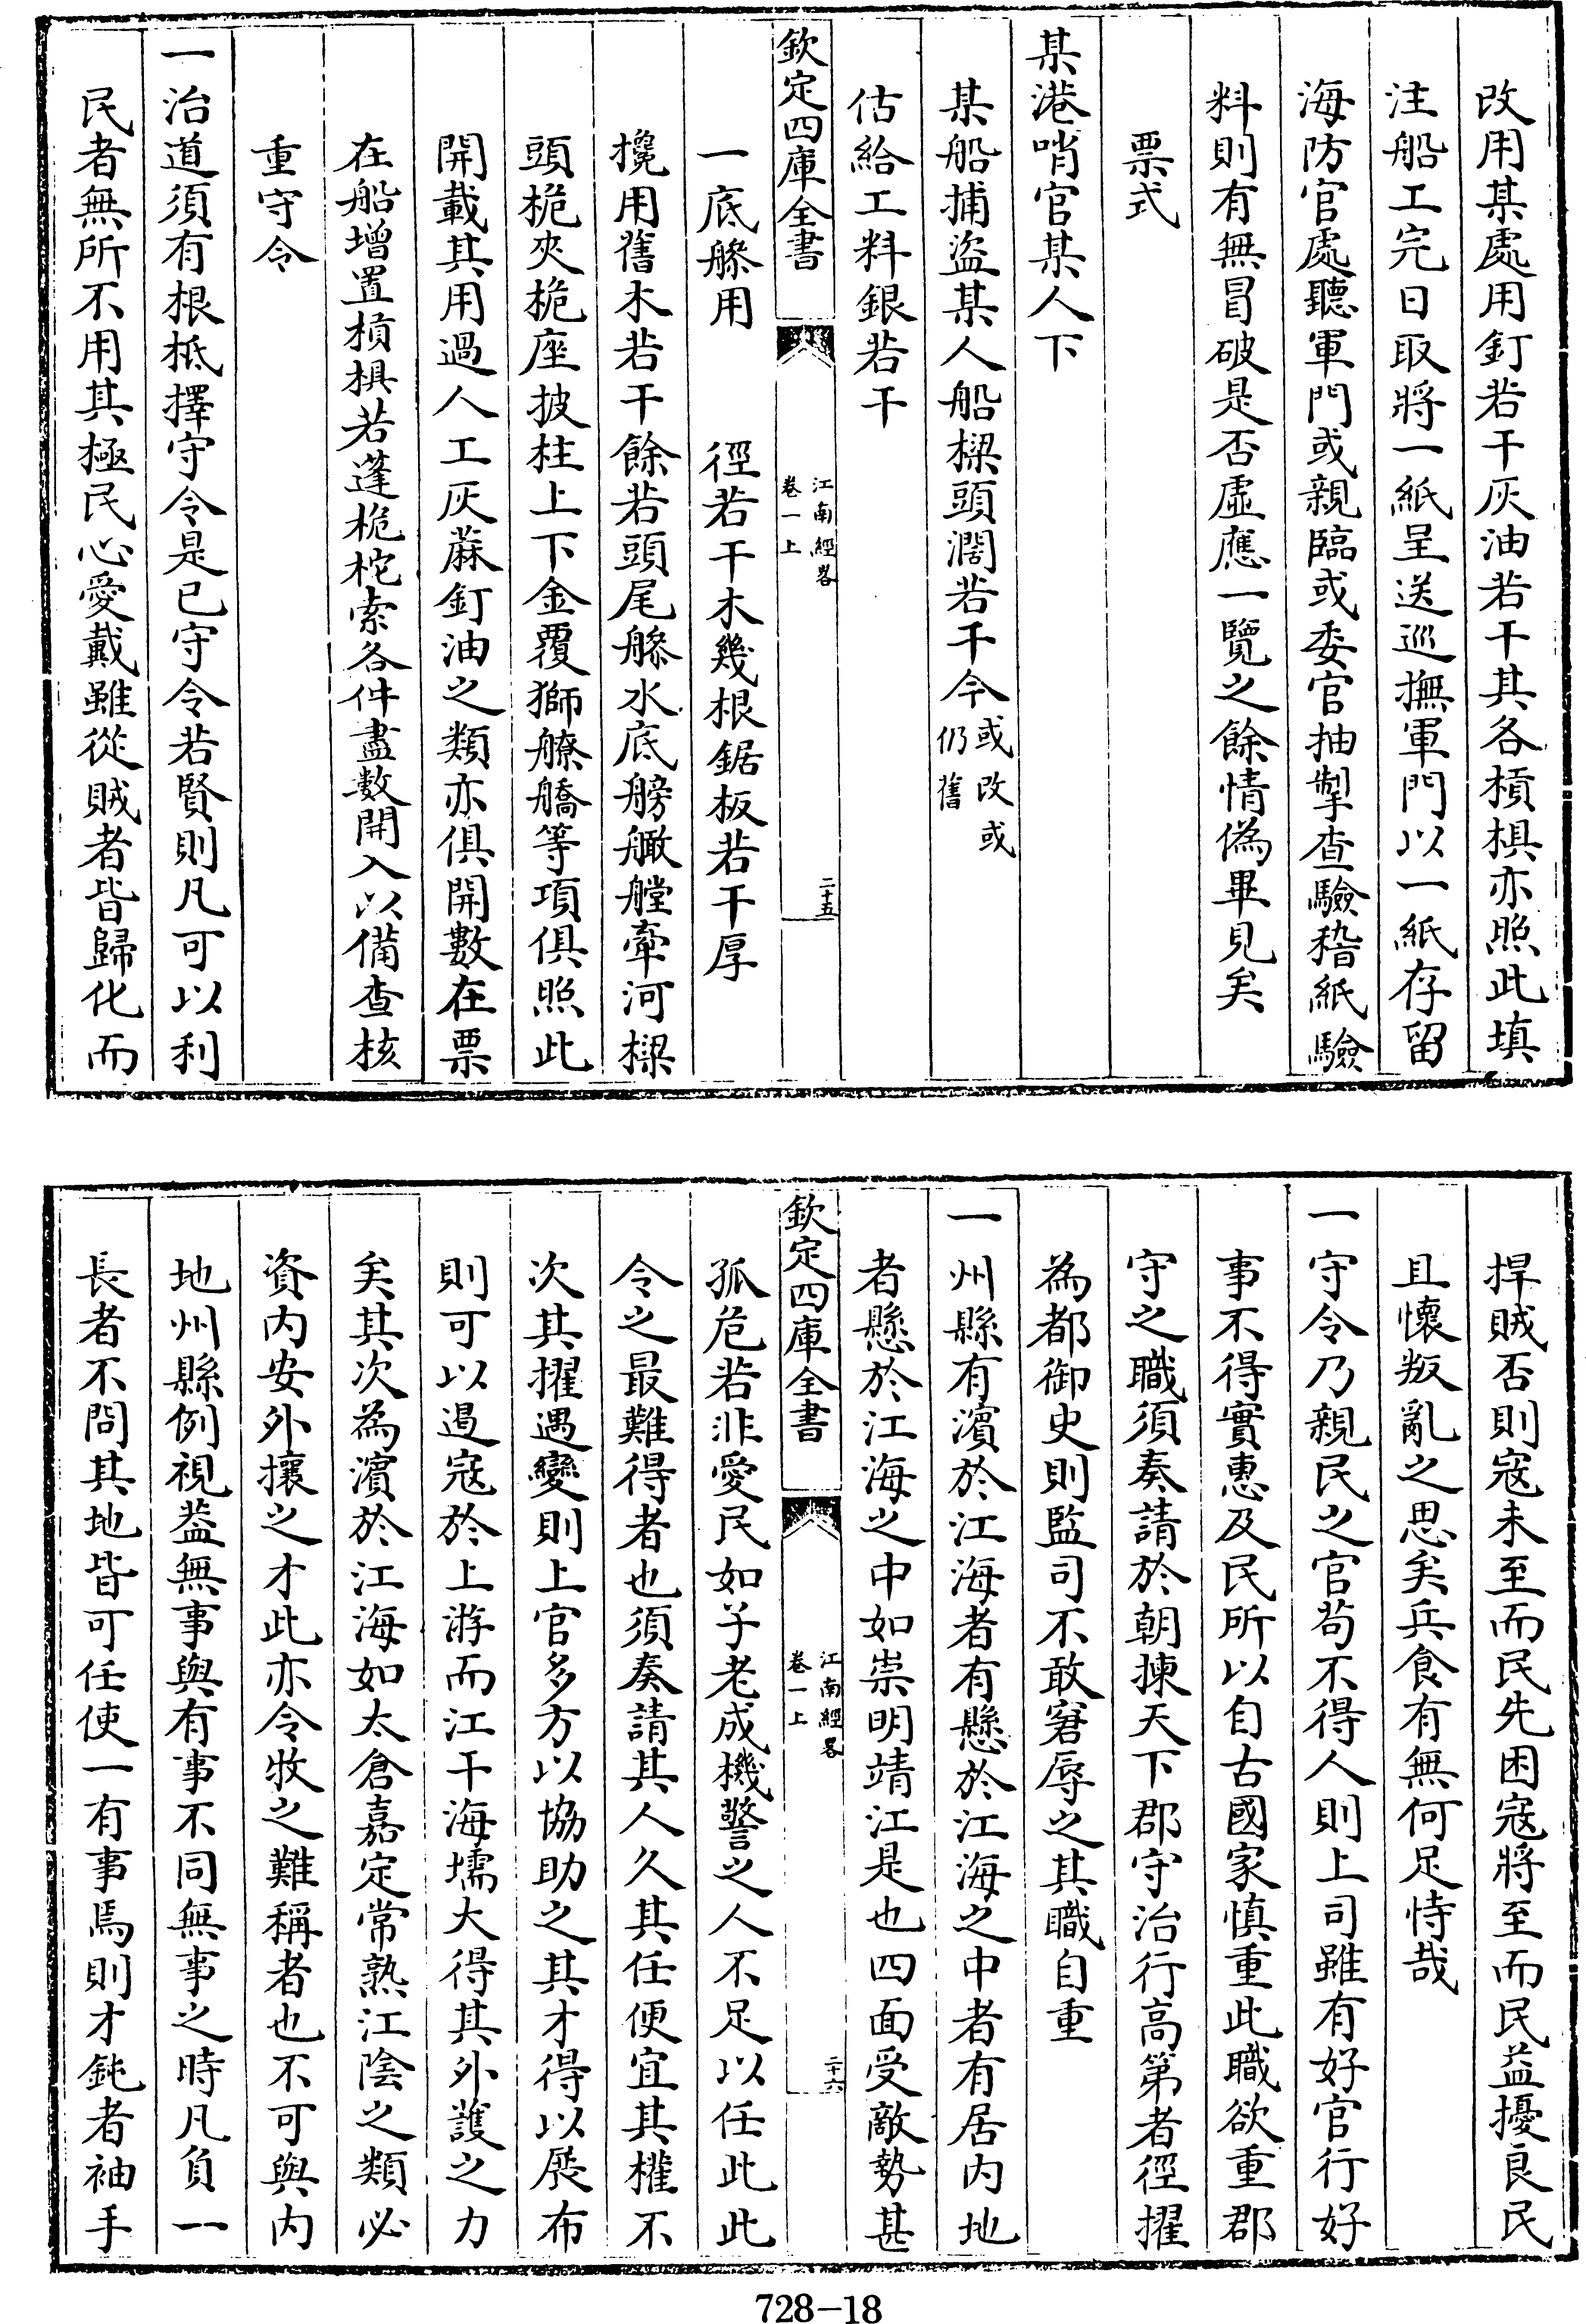 改用某處用釘若干灰油若干其各槓椇亦照此填
注船工完日取將一紙呈送巡撫軍門以一紙存留
海防官處聽軍門或親臨或委官抽掣查驗稽紙驗
料則有無冒破是否虛應一覽之餘情偽畢見矣
票式
某港哨官某人下
某船捕盜某人船樑頭濶若干今或改或仍舊
估給工料銀若干
欽定四庫全書
江南經畧
卷一上
二十五
一底艌用 徑若干木幾根鋸板若干厚
攙用舊木若干餘若頭尾艌水底艕𦪇艡牽河樑
頭桅夾桅座披柱上下金覆獅𦪕𦪞等項俱照此
開載其用過人工灰蔴釘油之類亦俱開數在票
在船增置槓椇若蓬桅柁索各件盡數開入以備查核
重守令
一治道須有根柢擇守令是已守令若賢則凡可以利
民者無所不用其極民心愛戴雖從賊者皆歸化而
捍賊否則寇未至而民先困寇將至而民益擾良民
且懷叛亂之思矣兵食有無何足恃哉
一守令乃親民之官苟不得人則上司雖有好官行好
事不得實惠及民所以自古國家慎重此職欲重郡
守之職須奏請於朝揀天下郡守治行高第者徑擢
為都御史則監司不敢窘辱之其職自重
一州縣有濵於江海者有懸於江海之中者有居內地
者懸於江海之中如崇明靖江是也四面受敵勢甚
欽定四庫全書
江南經畧
卷一上
二十六
孤危若非愛民如子老成機警之人不足以任此此
令之最難得者也須奏請其人久其任便宜其權不
次其擢遇變則上官多方以協助之其才得以展布
則可以遏寇於上游而江干海壖大得其外護之力
矣其次為濵於江海如太倉嘉定常熟江陰之類必
資內安外攘之才此亦令牧之難稱者也不可與內
地州縣例視葢無事與有事不同無事之時凡負一
長者不問其地皆可任使一有事焉則才鈍者袖手
728-18